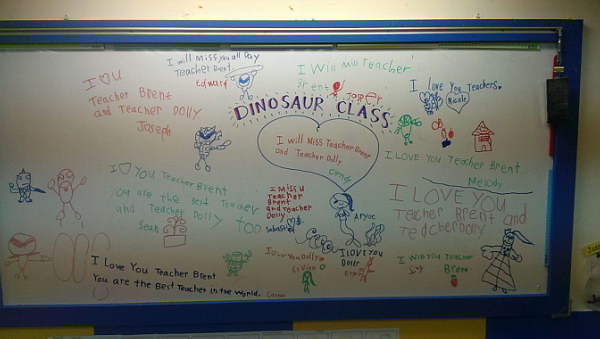 I will Miss you all Day
Teacher Brent
Edward
I ♡ U
Teacher Brent
and Teacher Dolly
Joseph
I Will Miss Teacher
Brent
Jasper
I love You Teachers.
Nicole
DINOSAUR CLASS
I will MISS Teacher Brent
and Teacher Dolly
Candy
I LOVE YOU Teacher Brent
Melody
I ♡ You Teacher Brent
You are the best Teacher
and Teacher Dolly too.
Sean
I Miss U
Teacher
Brent
and Teacher
Dolly
Sebastian
I LOVE YOU
Teacher Brent and
TeacherDolly
I Love You Teacher Brent
You are the Best Teacher in the World.
I Love You Dolly
Vivian
I LOVE YOU
Dolly
I Will You Teacher
Brent